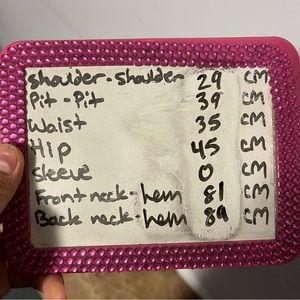 shoulder-shoulder 29 CM
Pit-Pit 39 CM
Waist 35 CM
Hip 45 CM
Sleeve 0 CM
Front neck-hem 81 CM
Back neck-hem 89 CM